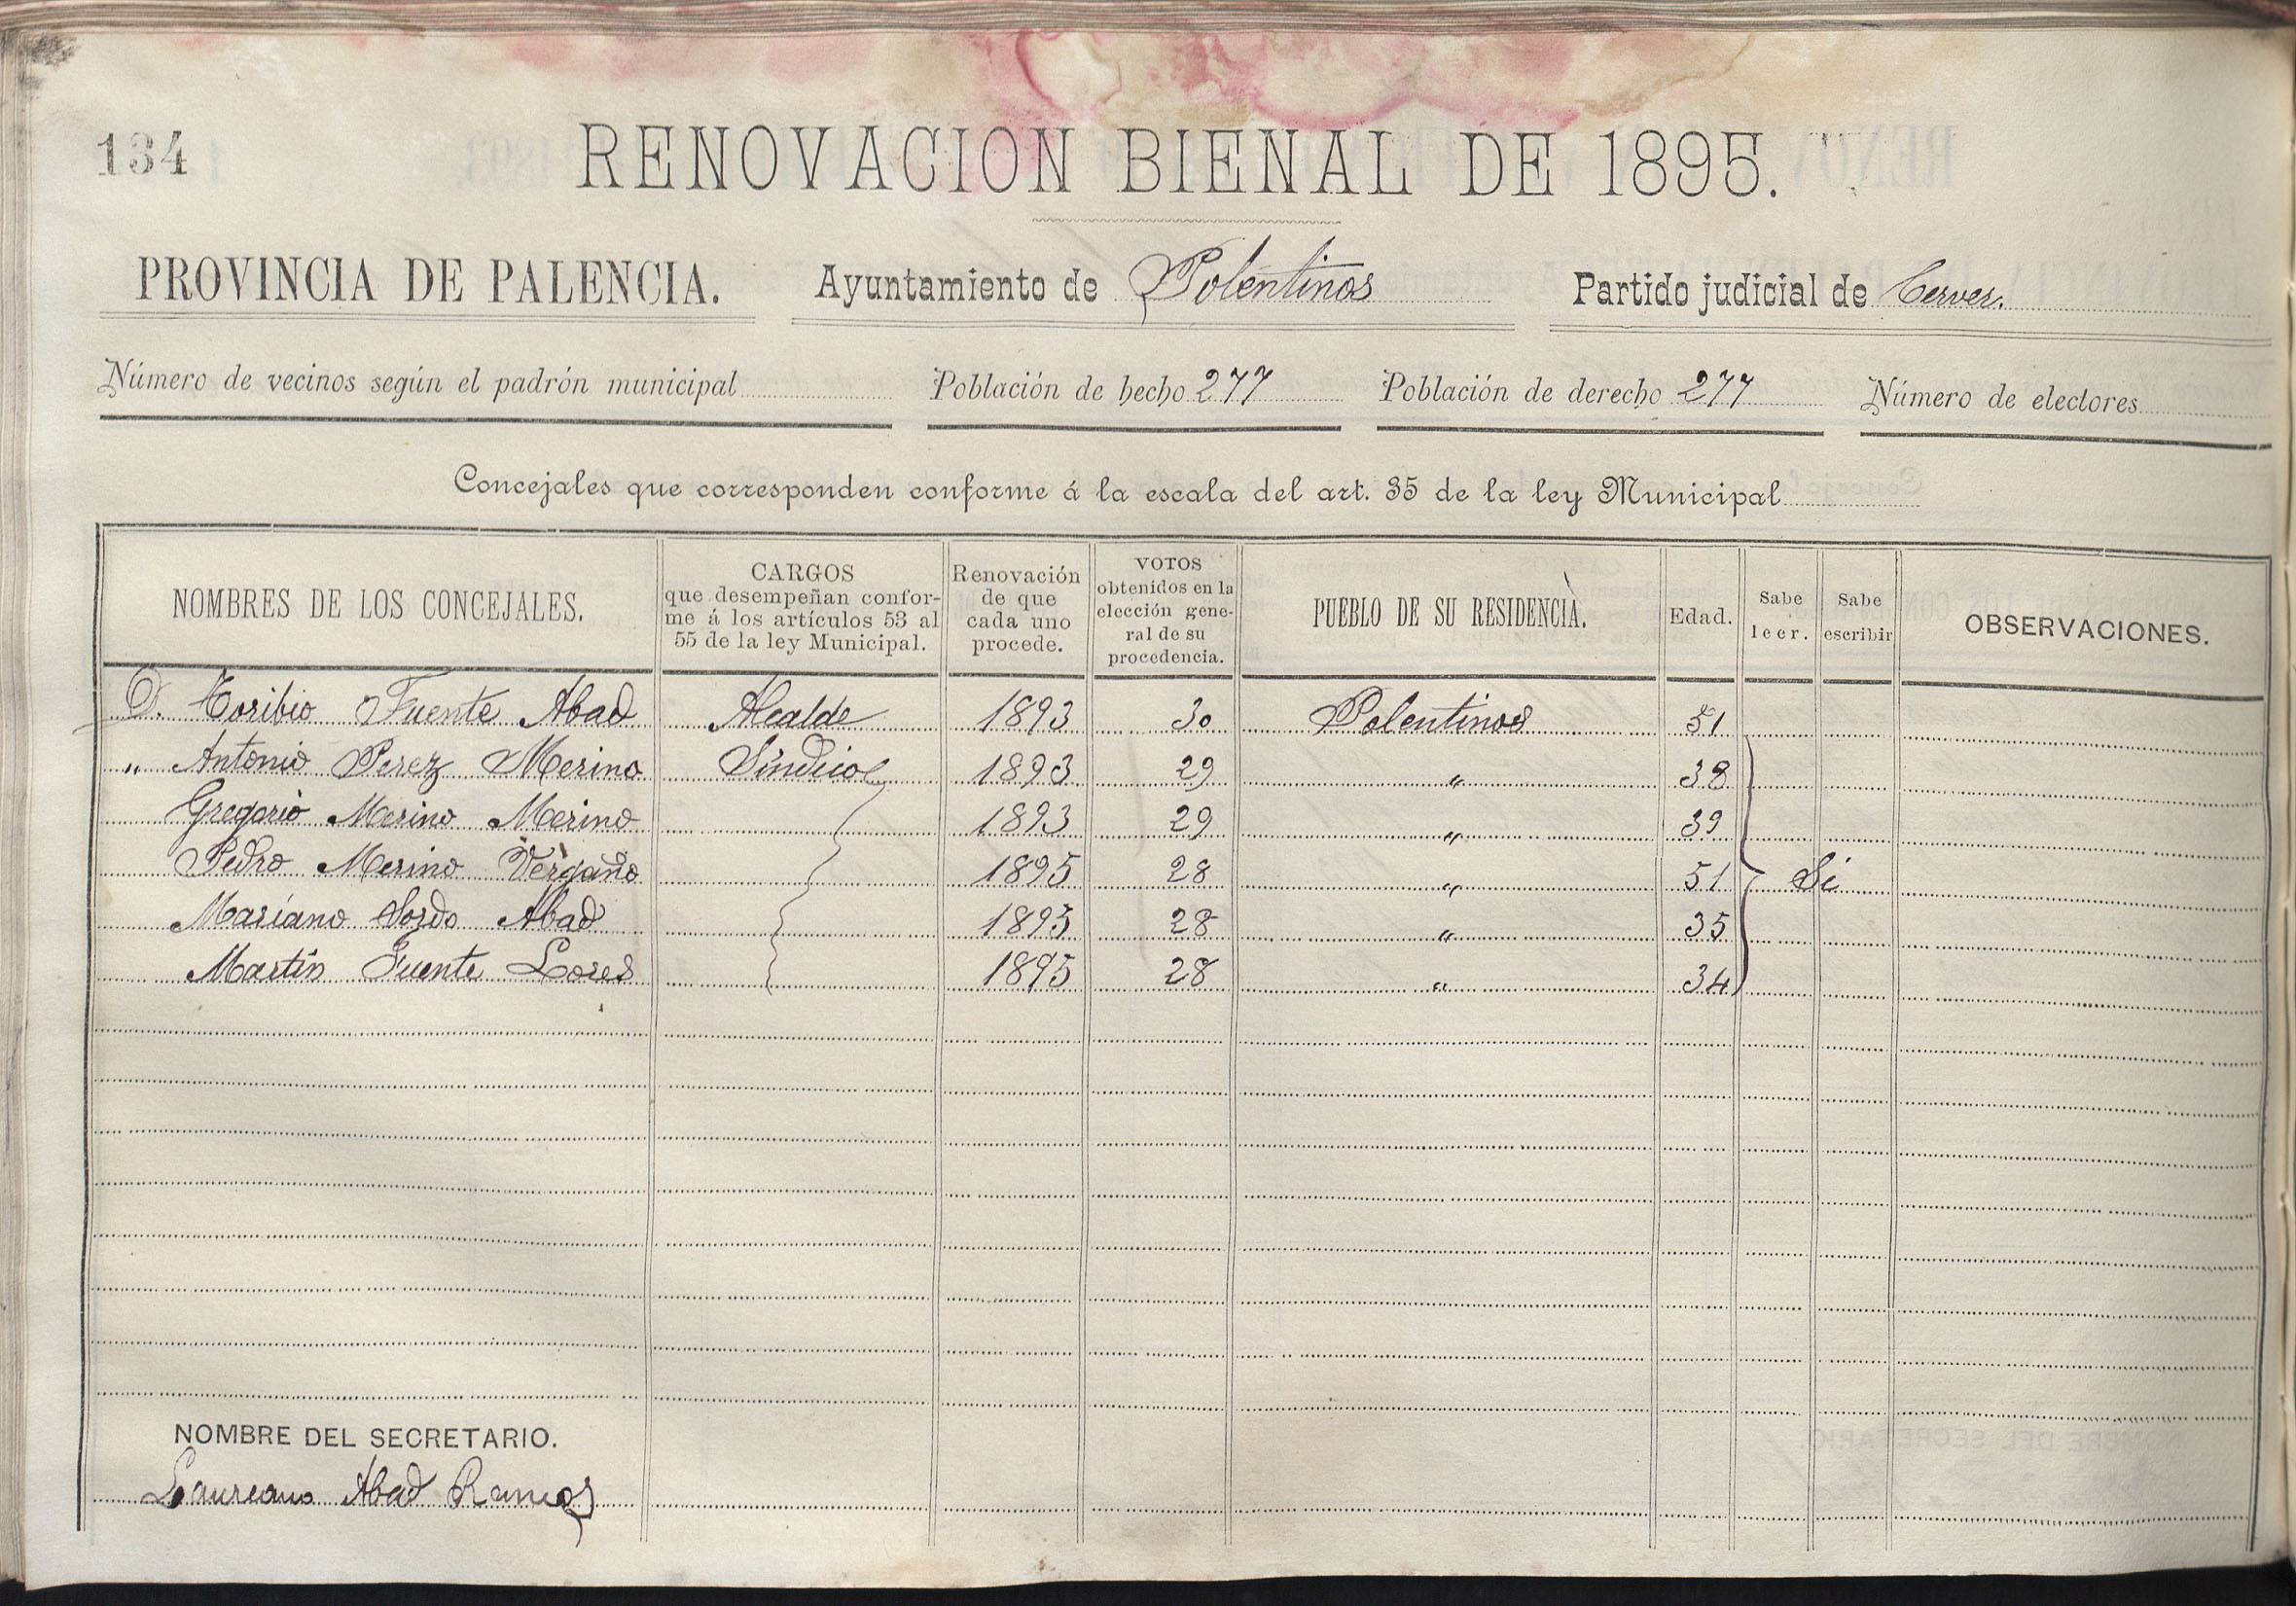 134 RENOVACION BIENAL DE 1895.
PROVINCIA DE PALENCIA. Ayuntamiento de Polentinos Partido judicial de Cerver.
Número de vecinos según el padrón municipal Población de hecho 277 Población de derecho 277 Número de electores
Concejales que corresponden conforme á la escala del art. 35 de la ley Municipal
NOMBRES DE LOS CONCEJALES.
CARGOS
que desempeñan confor-
me á los artículos 53 al
55 de la ley Municipal.
Renovación
de que
cada uno
procede.
VOTOS
obtenidos en la
elección gene-
ral de su
procedencia.
PUEBLO DE SU RESIDENCIA.
Edad.
Sabe
leer.
Sabe
escribir
OBSERVACIONES.
D. Toribio Fuente Abad Alcalde 1893 30 Polentinos 51
" Antonio Perez Merino Síndico 1893 29 " 38
Gregorio Merino Merino 1893 29 " 39
Pedro Merino Vergaño 1895 28 " 51 Sí
Mariano Sordo Abad 1895 28 " 35
Martín Fuente Lores 1895 28 " 34
NOMBRE DEL SECRETARIO.
Laureano Abad Ramos